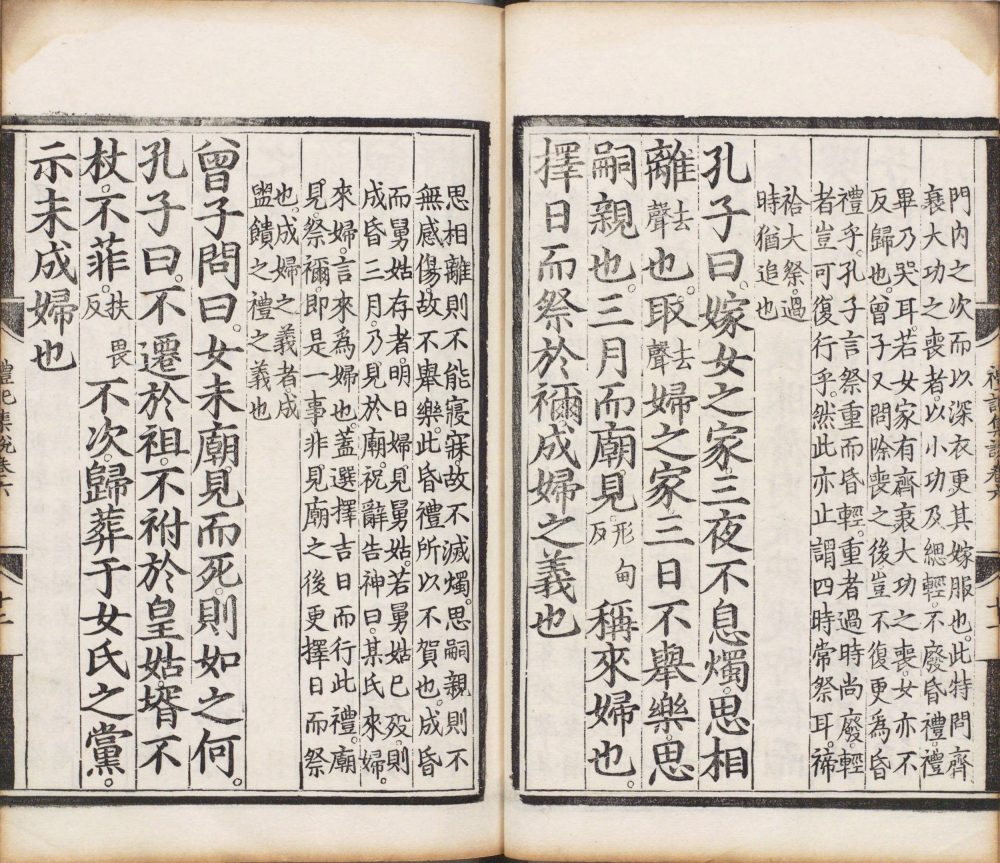 禮記集說卷六
十一
門內之次而以深衣更其嫁服也。此特問齊
衰大功之喪者。以小功及緦輕。不廢昏禮。禮
畢乃哭耳。若女家有齊衰大功之喪。女亦不
反歸也。曾子又問除喪之後豈不復更為昏
禮乎。孔子言祭重而昏輕。重者過時尚廢。輕
者豈可復行乎。然此亦止謂四時常祭耳。禘
祫大祭過
時猶追也
孔子曰。嫁女之家。三夜不息燭。思相
離去聲也。取去聲婦之家。三日不舉樂。思
嗣親也。三月而廟見形甸反稱來婦也。
擇日而祭於禰。成婦之義也
思相離則不能寢寐。故不滅燭。思嗣親則不
無感傷。故不舉樂。此昏禮所以不賀也。成昏
而舅姑存者。明日婦見舅姑。若舅姑已歿。則
成昏三月。乃見於廟。祝辭告神曰。某氏來婦。
來婦。言來為婦也。蓋選擇吉日而行此禮。廟
見。祭禰。即是一事。非見廟之後更擇日而祭
也。成婦之義者。成
盥饋之禮之義也
曾子問曰。女未廟見而死。則如之何。
孔子曰。不遷於祖。不祔於皇姑。壻不
杖。不菲扶畏反。不次。歸葬于女氏之黨。
示未成婦也
禮記集說卷六
十二